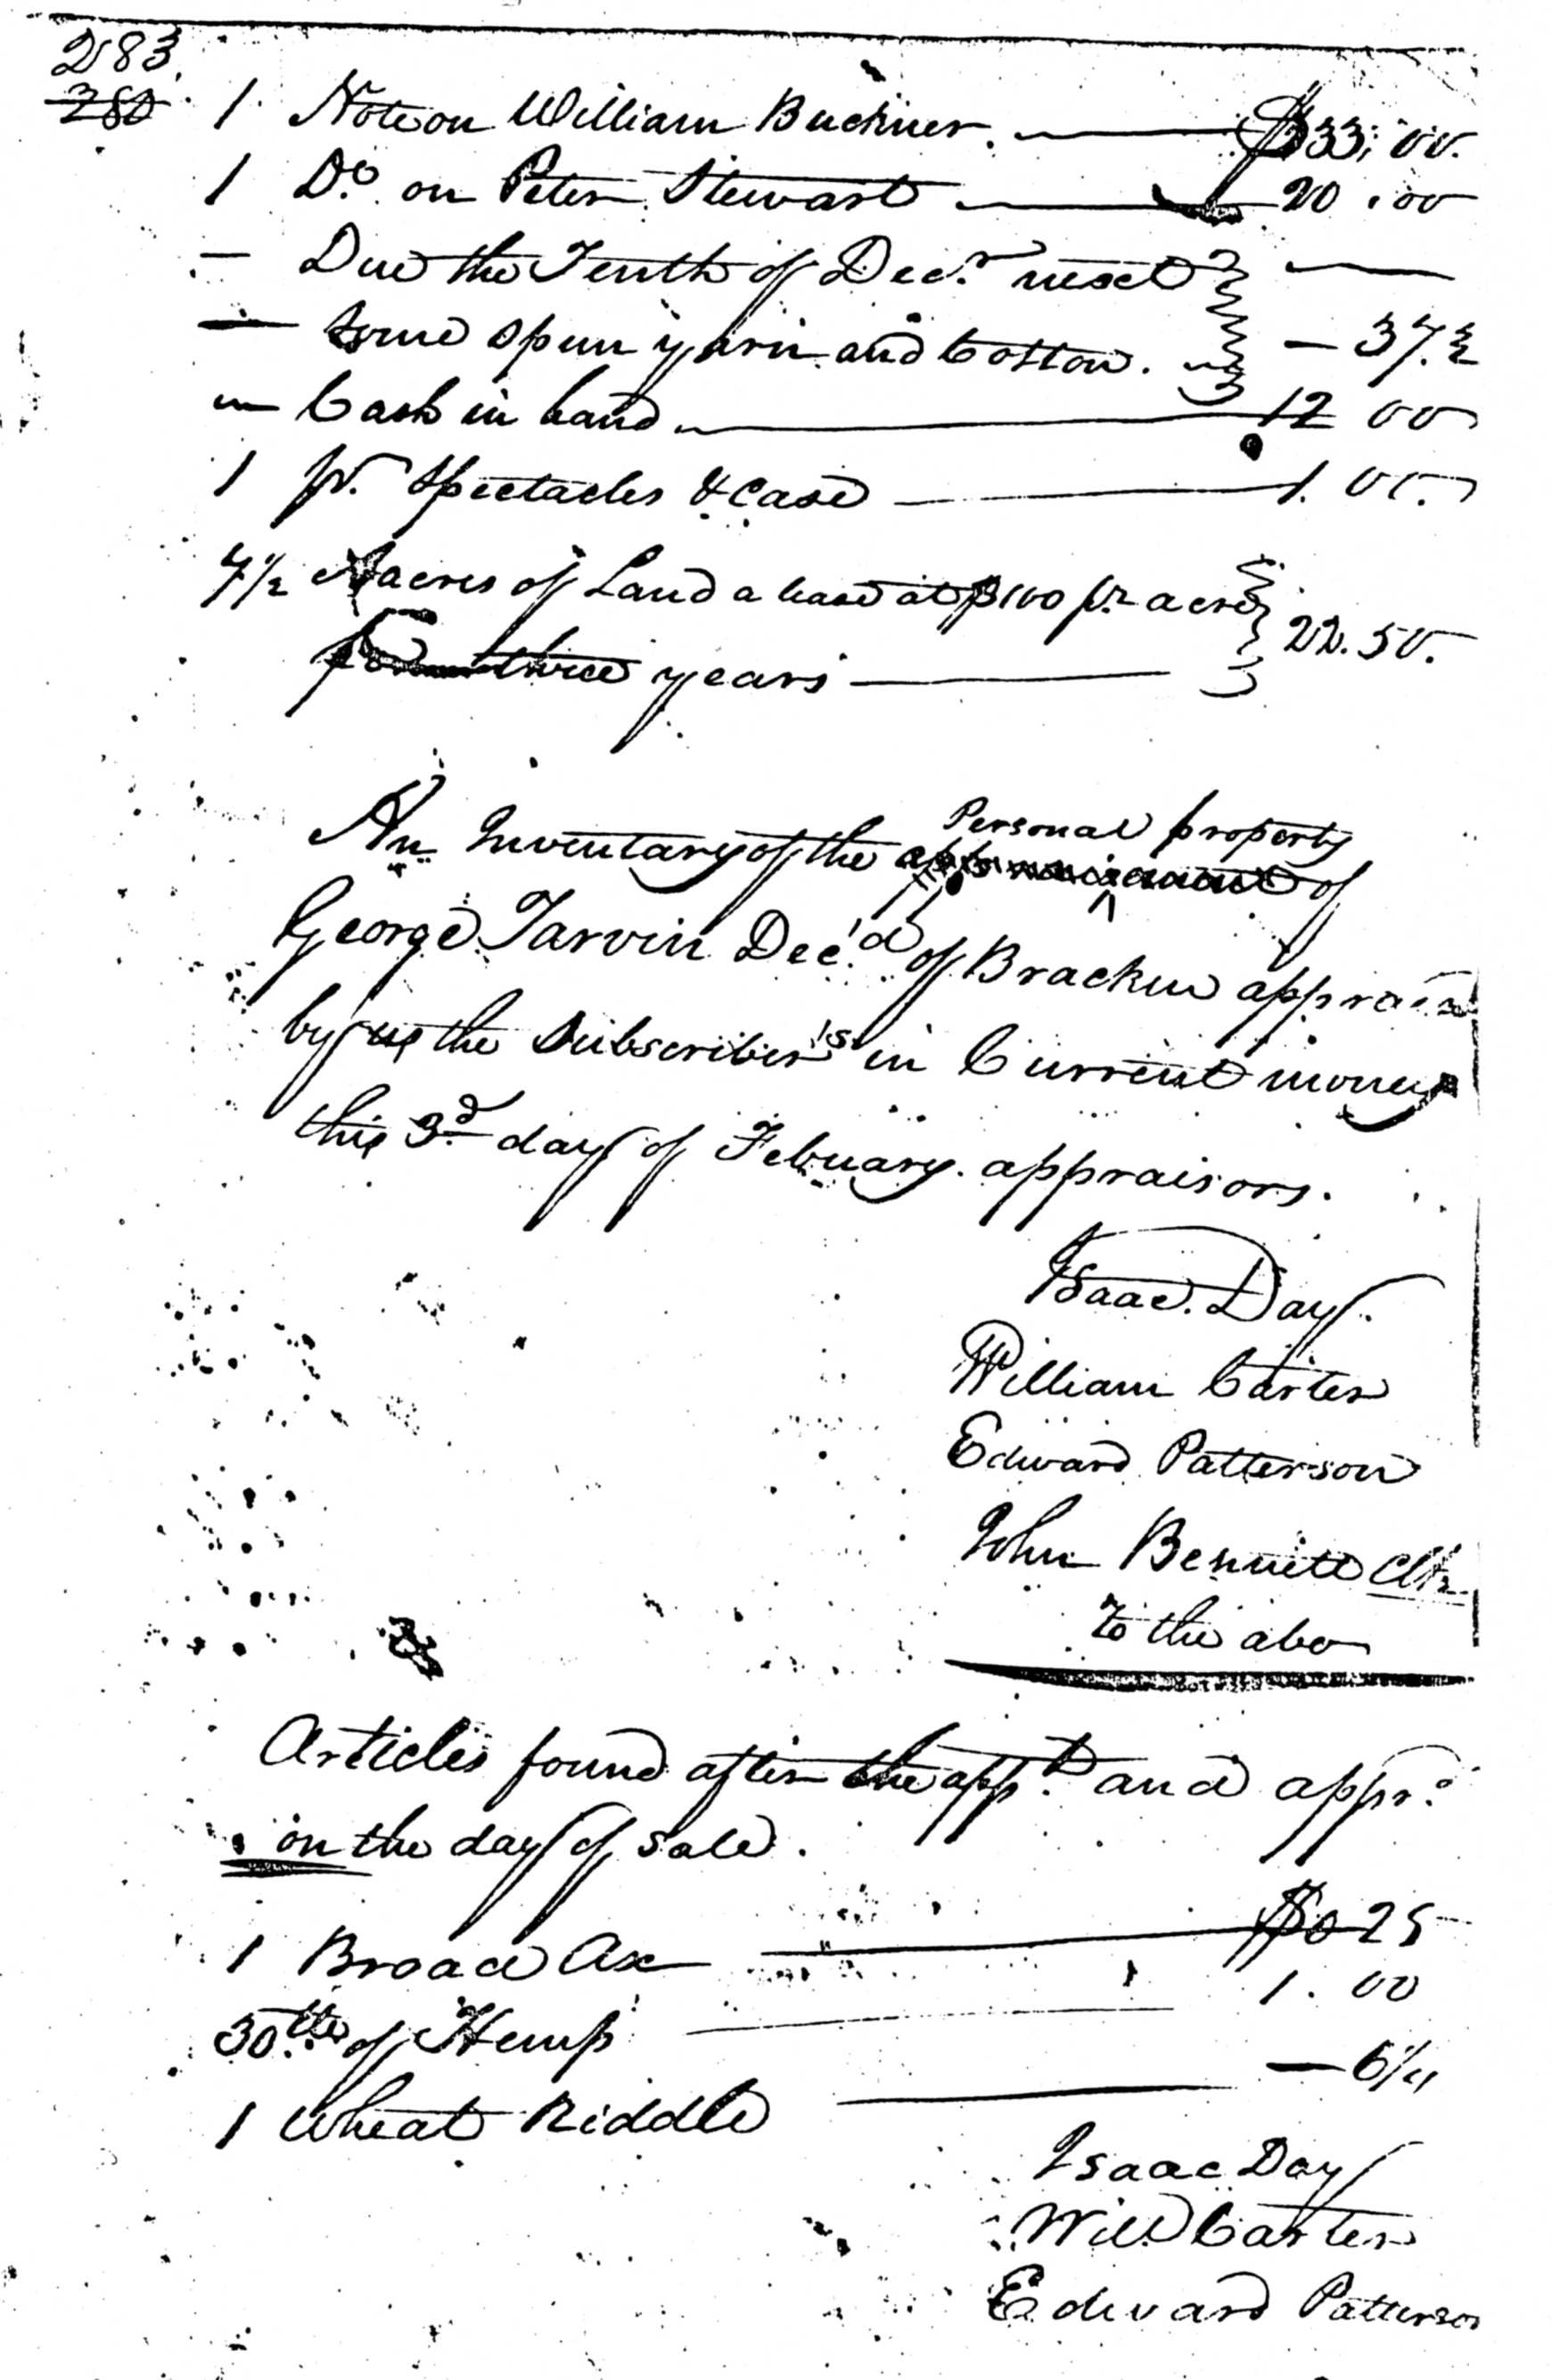 283
280
1 Note on William Buckner. $33.00.
1 Do. on Peter Stewart 20.00
— Due the Tenth of Decr. next —
— Some Spun yarn and Cotton. — 37.½
— Cash in hand 12 00
1 pr. Spectacles & Case 1.00
7½ acres of Land a lease at $100 pr acre
for three years 22.50.
Personal property
An Inventary of the of
George Tarvin Dec'd of Bracken apprais
by us the Subscriber's in Current money
this 3d day of Febuary. appraisors.
Isaac Day.
William Carter
Edward Patterson
John Bennett Clk
to the abo
Articles found after the appt. and appr.
on the day of sale.
1 Broad Ax $0 25
30 lbs of Hemp 1.00
1 Wheat Riddle — 6¼
Isaac Day
Will Carter
Edward Patterson